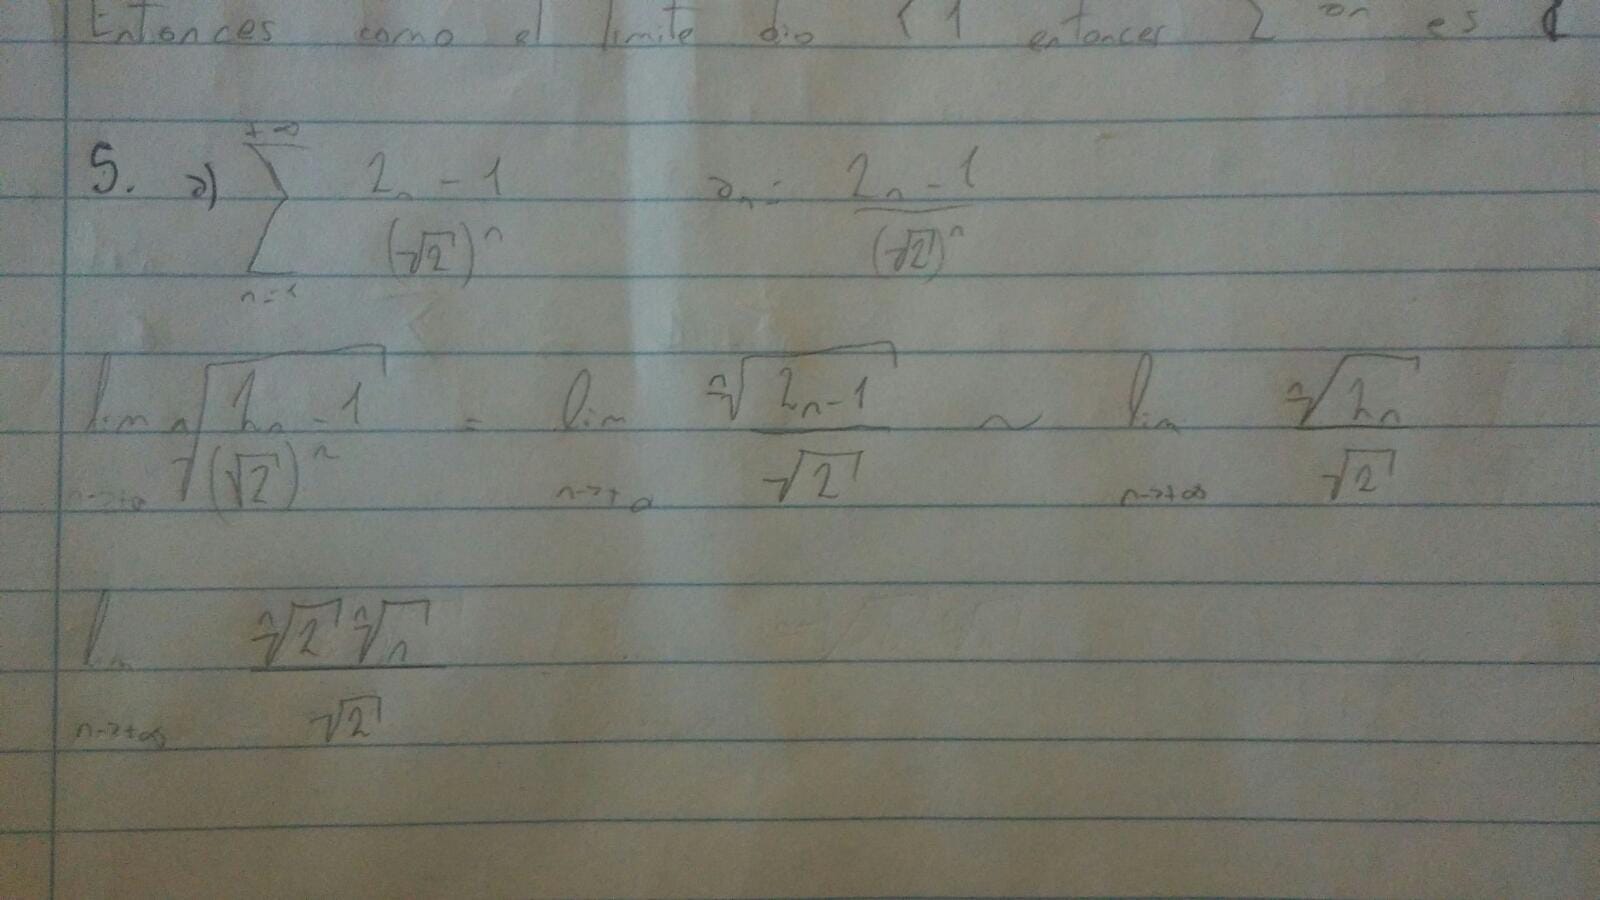 Entonces como el limite dio < 1 entonces Σ an es C
5. a) +∞ Σ n=1 2n - 1 / (√2)^n an = 2n - 1 / (√2)^n
lim n→+∞ n√(2n - 1 / (√2)^n) = lim n→+∞ n√(2n - 1) / √2 ~ lim n→+∞ n√(2n) / √2
lim n→+∞ n√2 n√n / √2